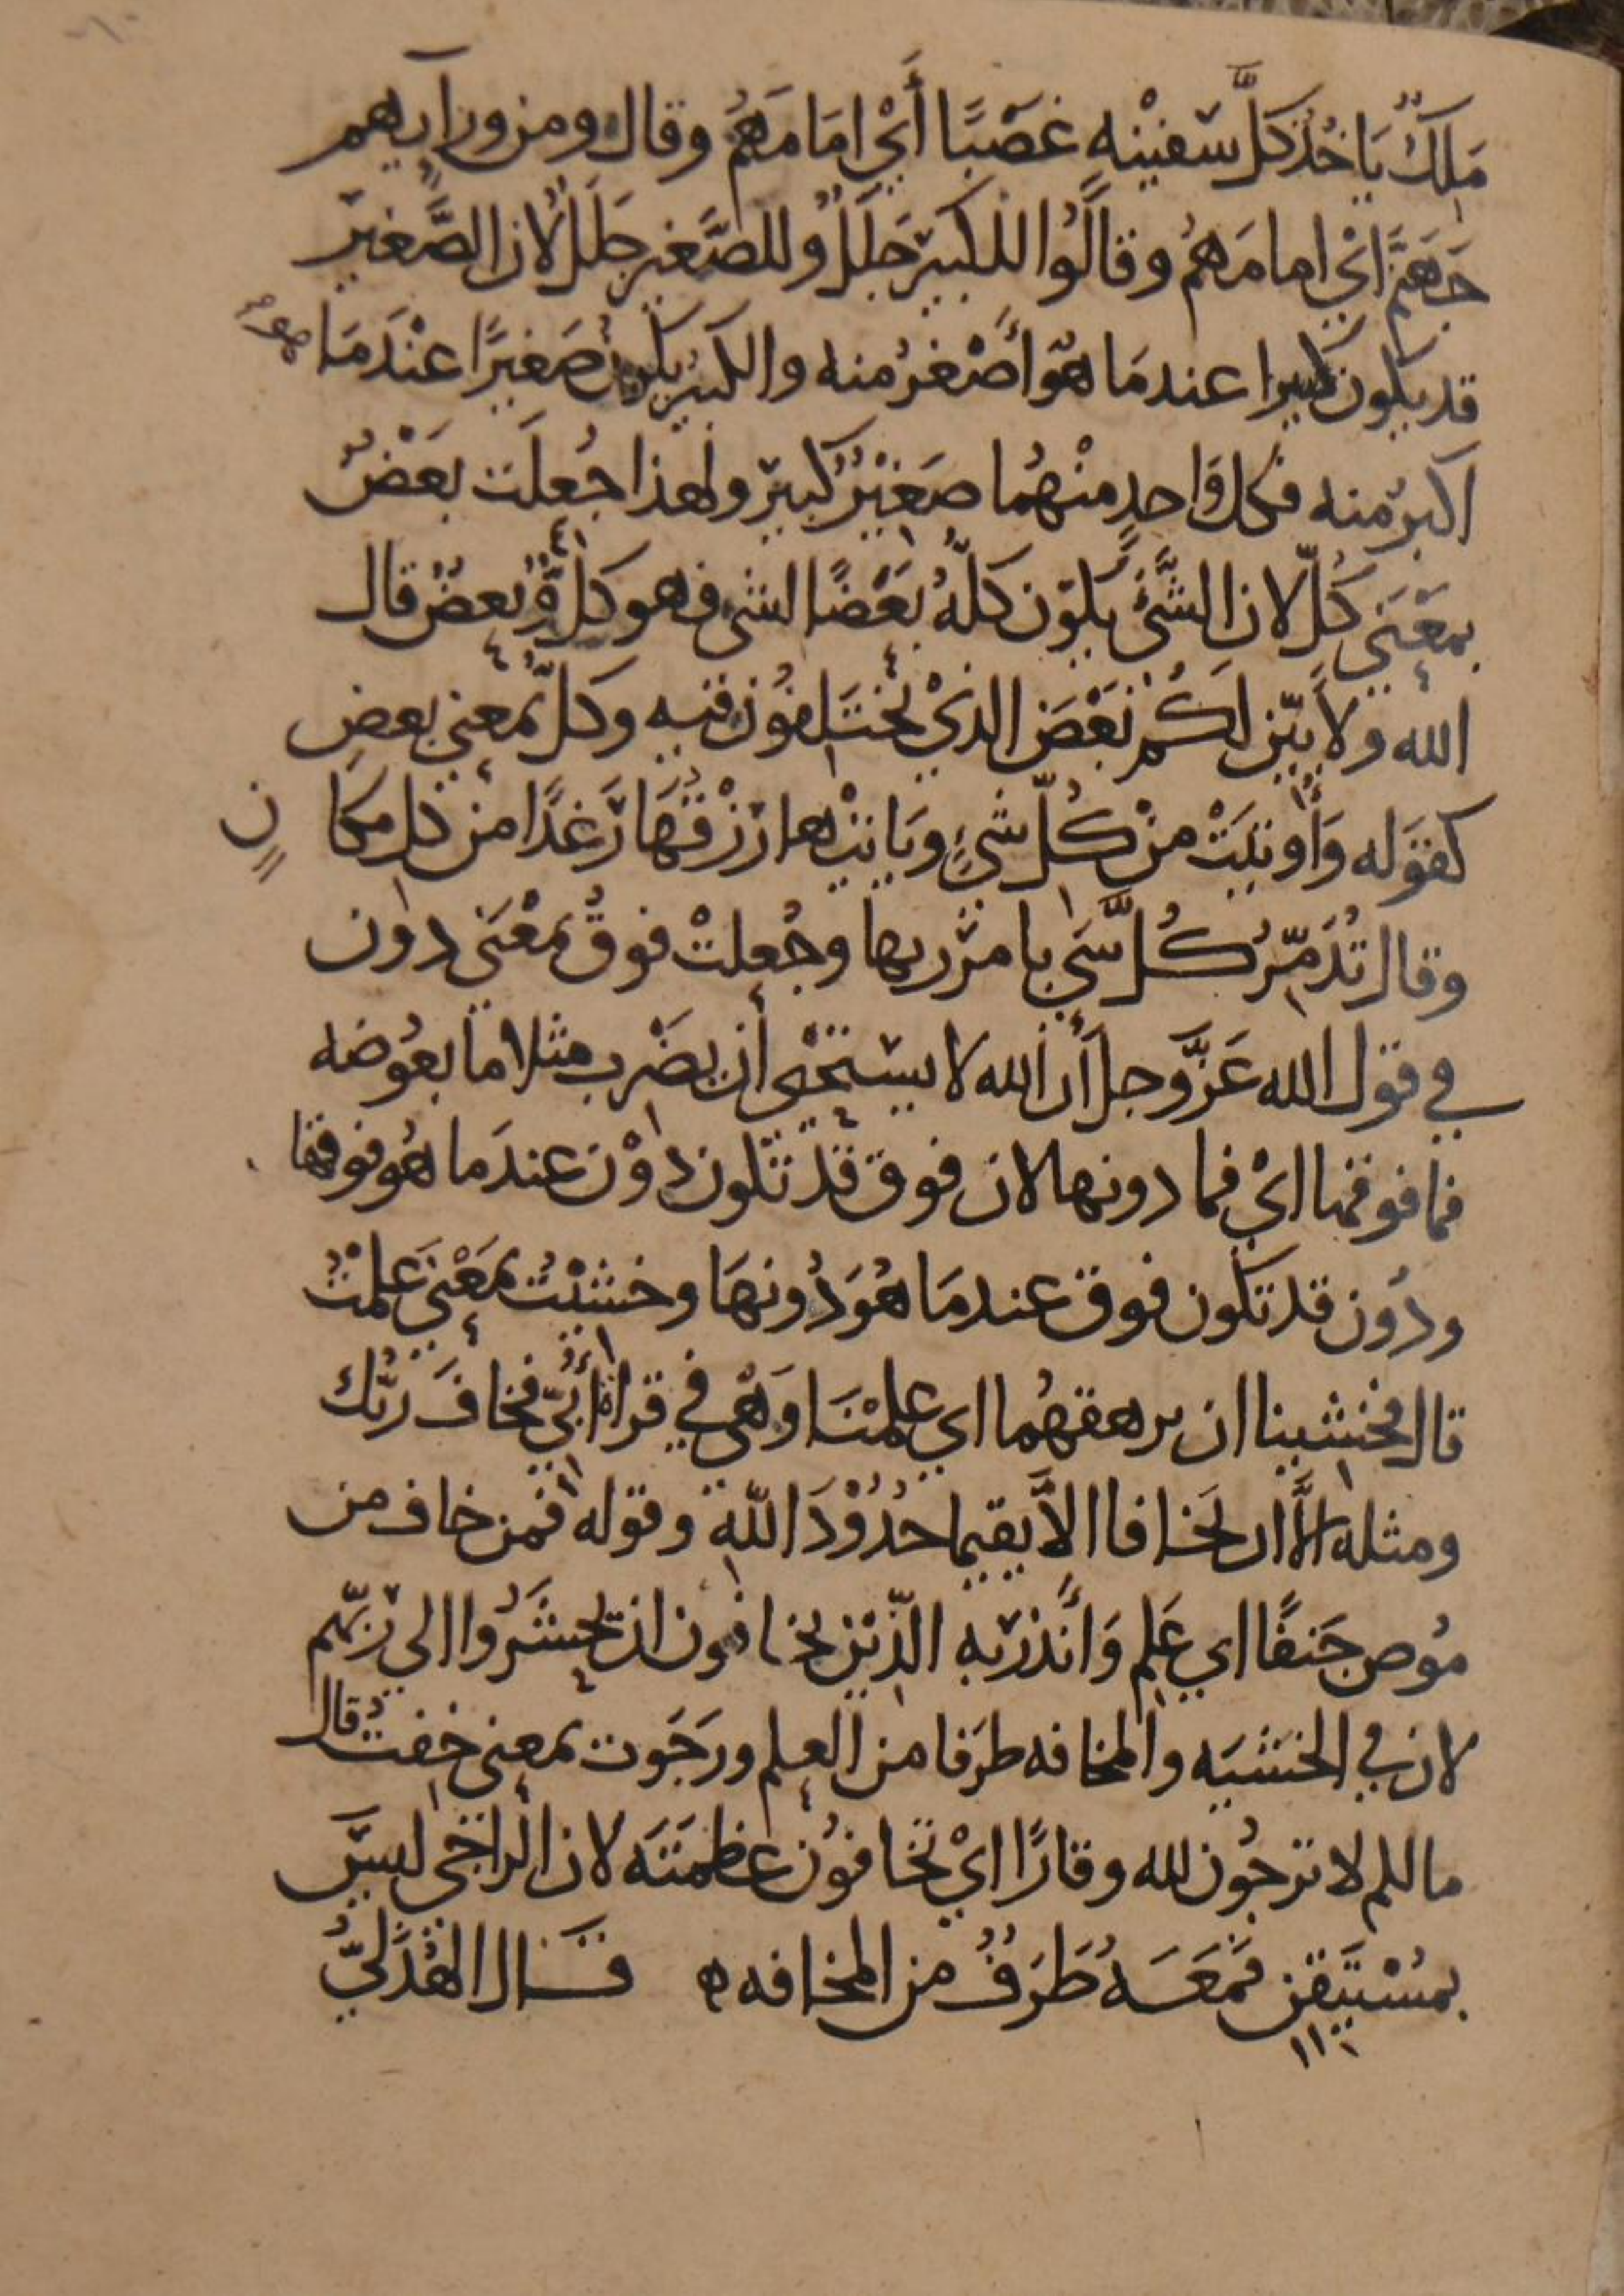 مَلِكٌ يَاخُذ كلَّ سَفيْنهٍ غَصْبًا أَيْ امَامَهُمْ وقال ومن ورآيهم
جَهَنَّم ائي امامَهُم وقالُوا للكبيرَ جَلَلٌ وللصَّغير جَلَلٌ لان الصَّغيرَ
قد يكون كبيرا عندمَا هُوَ أَصْغرُ منه والكبير يكون صَغيرًا عنْدَمَا هو
اكبرُ منه فكل وَاحدٍ منْهُما صَغيْرٌ كبيرٌ ولهذا جُعلَت بَعْضٌ
بمَعْنَي كُلّ لان الشَّئَ يكون كلّهُ بَعْضًا لشى فهو كلٌّ وبعضٌ قال
الله ولاُبيّن لكُم بَعْضَ الذيْ تختَلفوُن فيه وكلٌّ بمعني بعضٍ
كقوَله وَأُوتيَتْ منْ كُلّ شيْءٍ ويَاتيْها رزْقُهَا رَغدًا من كل مكانٍ
وقال تُدَمّرُ كُلَّ شَيْ بامْر ربها وجُعلتْ فوقُ بمعْنَى دون
في قول الله عَزَّ وجل أن الله لا يستحْيِي أن يضْرب مثلا ما بعُوضه
فما فوقها ايْ فما دونها لان فوق قد تكون دُوْن عندَما هُو فوقها
ودُون قد تكون فوق عندمَا هُوَ دُونهَا وخشيْتُ بمَعْنَي عَلمْتُ
قال فخشينا ان يرهقهُما اي علمْنَا وَهْي في قراة أُبَيّ فخافَ ربُّك
ومثله الاَّ ان يخافا الاَّ يقيما حُدُوْدَ اللّه وقوله فمن خاف من
مُوص جَنفًا اي عَلم وَأنذرْ به الّذيْن يخافون ان يحشَرُوا الي ربّهم
لان في الخشيَه والمخافه طرَفا من العلم ورَجَوت بمعني خفتُ قال
مالكم لا ترجُون لله وقارًا ايْ تخافوُن عظمَتَه لان الراجي ليسَ
بمُسْتَيقن فمَعَهُ طَرَفٌ من المخافه ه قال الهُذَليُّ